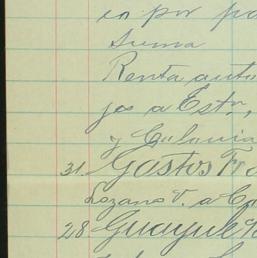 en por pa
suma
Renta auto
jos a Estn,
y Colonia
31 Gastos Fr
Lozano V. a Co
28 Guayule